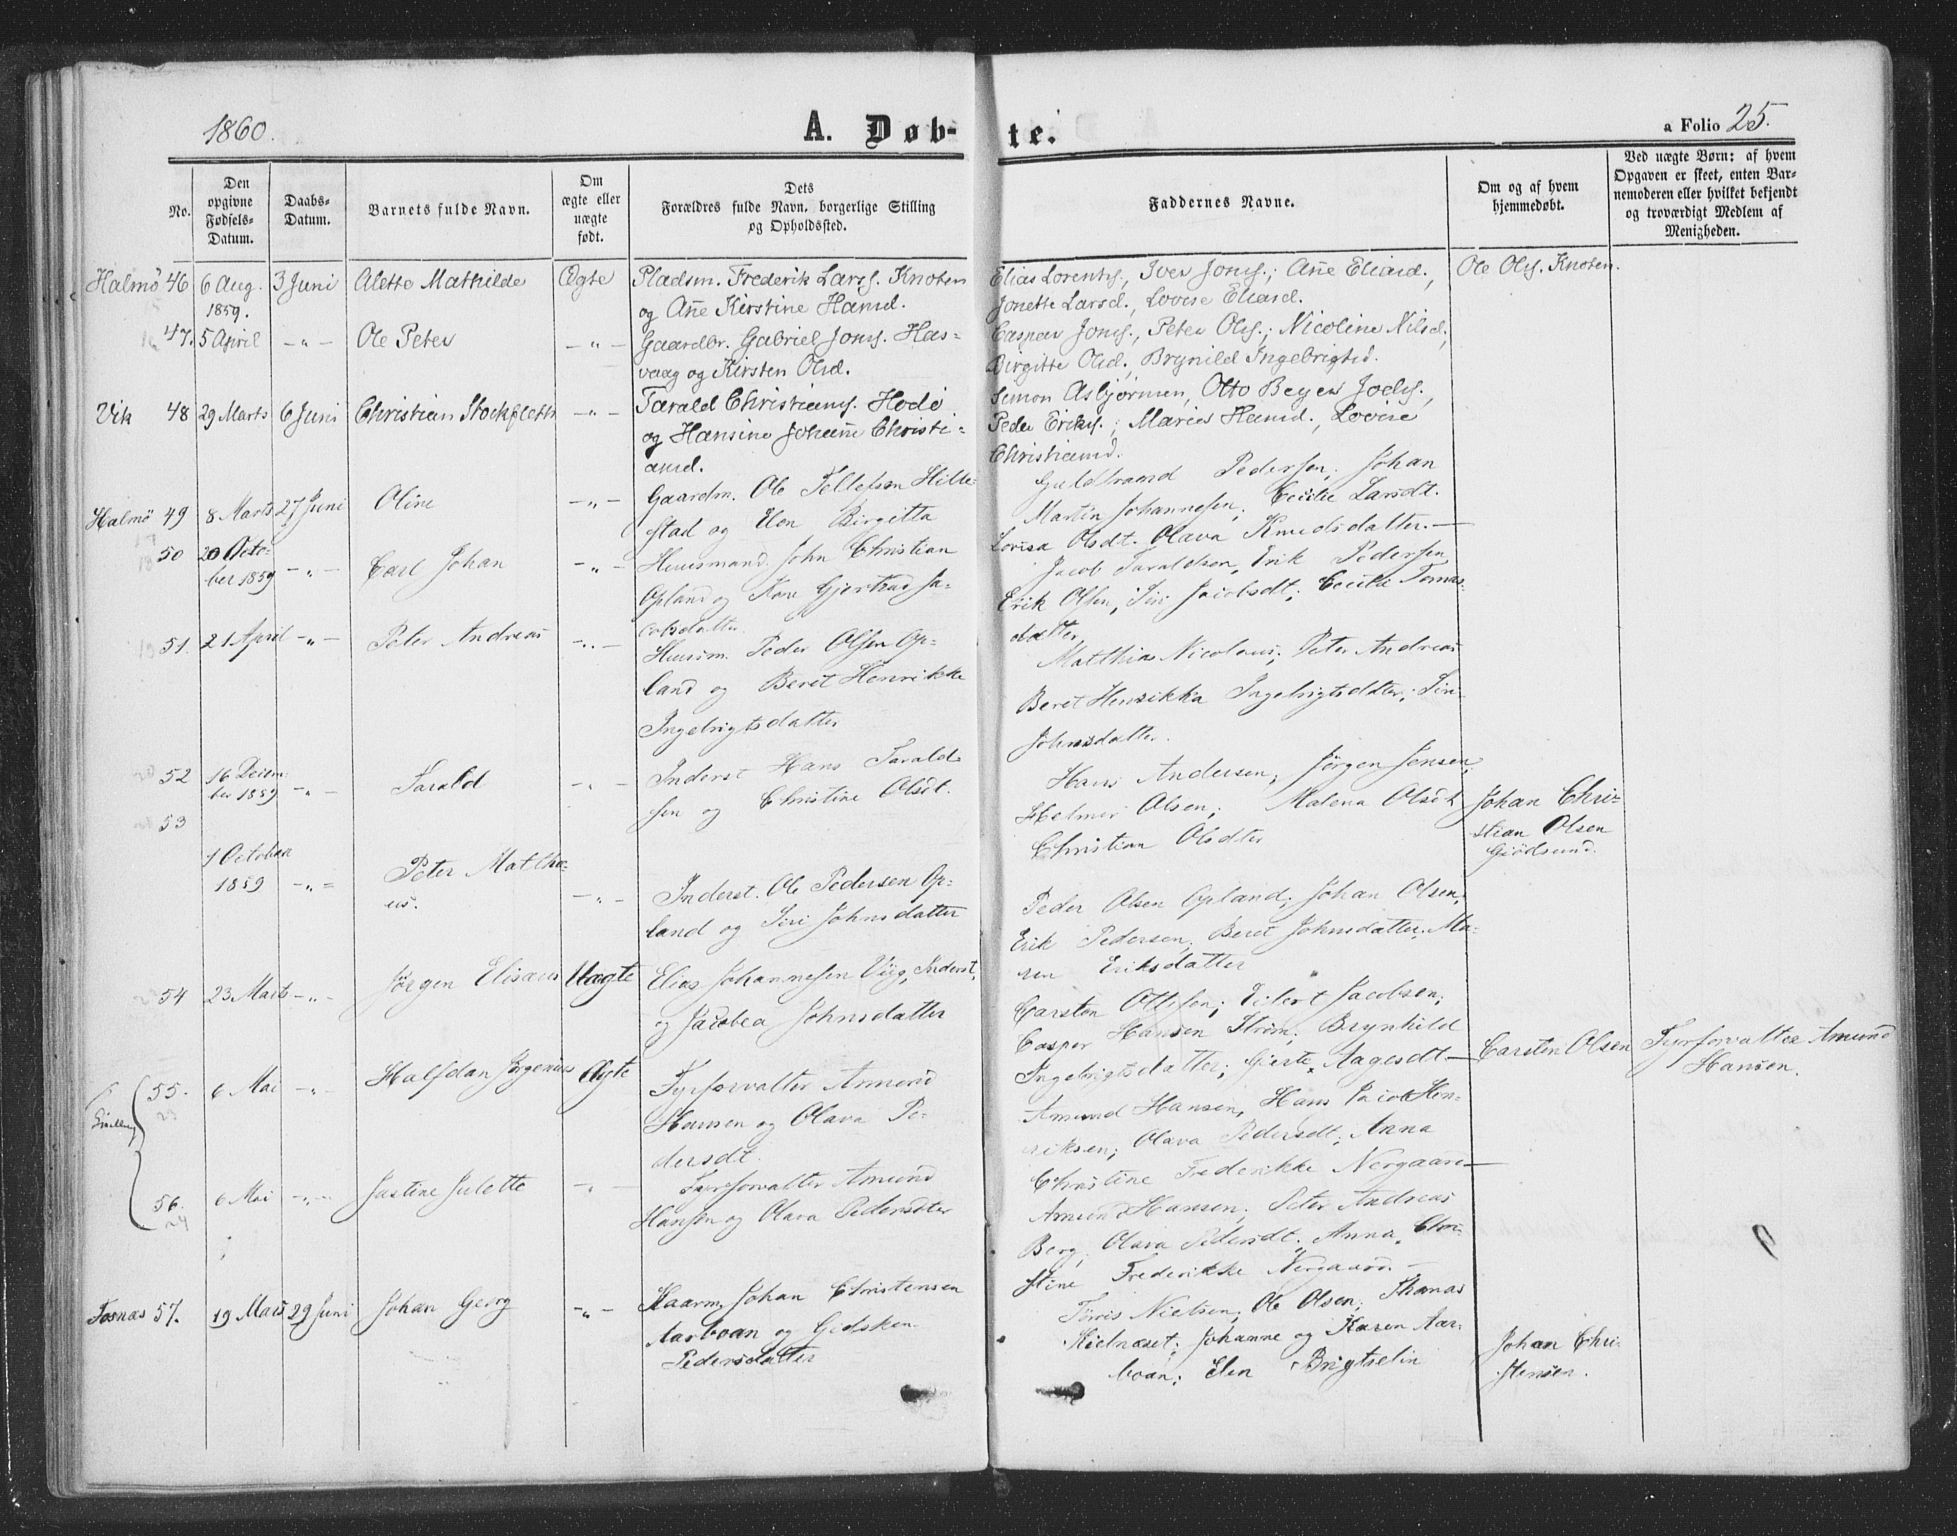 1860.
A. Døb-
te.
a Folio 25.
No.
Den
opgivne
Fødsels-
Datum.
Daabs-
Datum.
Barnets fulde Navn.
Om
ægte eller
uægte
født.
Dets
Forældres fulde Navn, borgerlige Stilling
og Opholdssted.
Faddernes Navne.
Om og af hvem
hjemmedøbt.
Ved uægte Børn: af hvem
Opgaven er skeet, enten Bar-
nemoderen eller hvilket bekjendt
og troværdigt Medlem af
Menigheden.
Halmø 46 6 Aug. 1859. 3 Juni Alette Mathilde Ægte
Pladsm. Frederik Larss. Knoten
og Ane Kirstine Hansd.
Elias Lorents., Iver Jons.; Ane Eliasd.,
Jonette Larsd., Lovise Eliasd.
Ole Ols. Knoten.
47. 5 April -"- Ole Peter -"-
Gaardbr. Gabriel Jons. Has-
vaag og Kirsten Olsd.
Caspar Jons., Peter Ols.; Nicoline Nilsd.,
Birgitte Olsd., Brynild Ingebrigtsd.
Vik 48 29 Marts 6 Juni Christian Stockfleth -"-
Tarald Christians. Hodø
og Hansine Johane Christi-
ansd.
Simon Asbjørnsen, Otto Beyer Joels.,
Peder Eriks.; Maries Hansd., Lovise
Christiansd.
Halmø 49 8 Marts 27 Juni Oline -"-
Gaardm. Ole Tellefsen Hille-
stad og Elen Birgitta
Guldbrand Pedersen, Johan
Martin Johannesen, Cecilie Larsdt.
Lovisa Olsdt. Olava Knudsdatter.
50 20 Octo-
ber 1859 -"- Carl Johan -"-
Huusmand John Christian
Opland og Karen Gjertrud Ja-
cobsdatter
Jacob Taraldsen, Erik Pedersen
Erik Olsen, Siri Jacobsdt; Cecilie Tomas-
datter
51. 21 April -"- Peter Andreas -"-
Huusm. Peder Olsen Op-
land og Beret Henrikke
Ingebrigtsdatter
Matthias Nicolaus; Peter Andreas
Beret Henrikka Ingebrigtsdatter; Siri
Johnsdatter.
52 16 Decem-
ber 1859 -"- Tarald -"-
Inderst Hans Tarald-
sen og Christine Olsdt.
Hans Andersen, Jørgen Jensen,
Helmer Olsen; Malena Olsdt
Christian Olsdter
Johan Chri-
stian Olsen
Giødsund.
53
1 October
1859 -"- Peter Mathæ-
us. -"-
Inderst. Ole Pedersen Op-
land og Siri Johnsdatter
Peder Olsen Opland; Johan Olsen,
Erik Pedersen, Beret Johnsdatter, Ma-
ren Eriksdatter
54 23 Marts -"- Jørgen Elisæus Uægte
Elias Johannesen Viig, Inderst,
og Jacobea Johnsdatter
Carsten Ottesen; Eilert Jacobsen;
Casper Hansen Strøm; Brynhild
Ingebrigtsdatter; Gjerte Aagesdt
Carsten Olsen
Fyrforvalter Amund
Hansen.
55. 6 Mai -"- Halfdan Jørgenius Ægte
Fyrforvalter Amund
Hansen og Olava Pe-
dersdt.
Amund Hansen, Hans Jacob Hen-
riksen; Olava Pedersdt; Anna
Christine Frederikke Nergaard
56. 6 Mai -"- Justine Julette -"-
Fyrforvalter Amund
Hansen og Olava Pedersdter
Amund Hansen; Peter Andreas
Berg, Olava Pedersdt. Anna Chri-
stine Frederikke Nergaard
Fosnæs 57. 19 Mars 29 Juni Johan Georg -"-
Haarm. Johan Christensen
Aarboan og Gidsken
Pedersdatter
Tøris Nielsen; Ole Olsen; Thomas
Kielnæset; Johanne og Karen Aar-
boan; Elen Brigtselin
Johan Chri-
stensen.